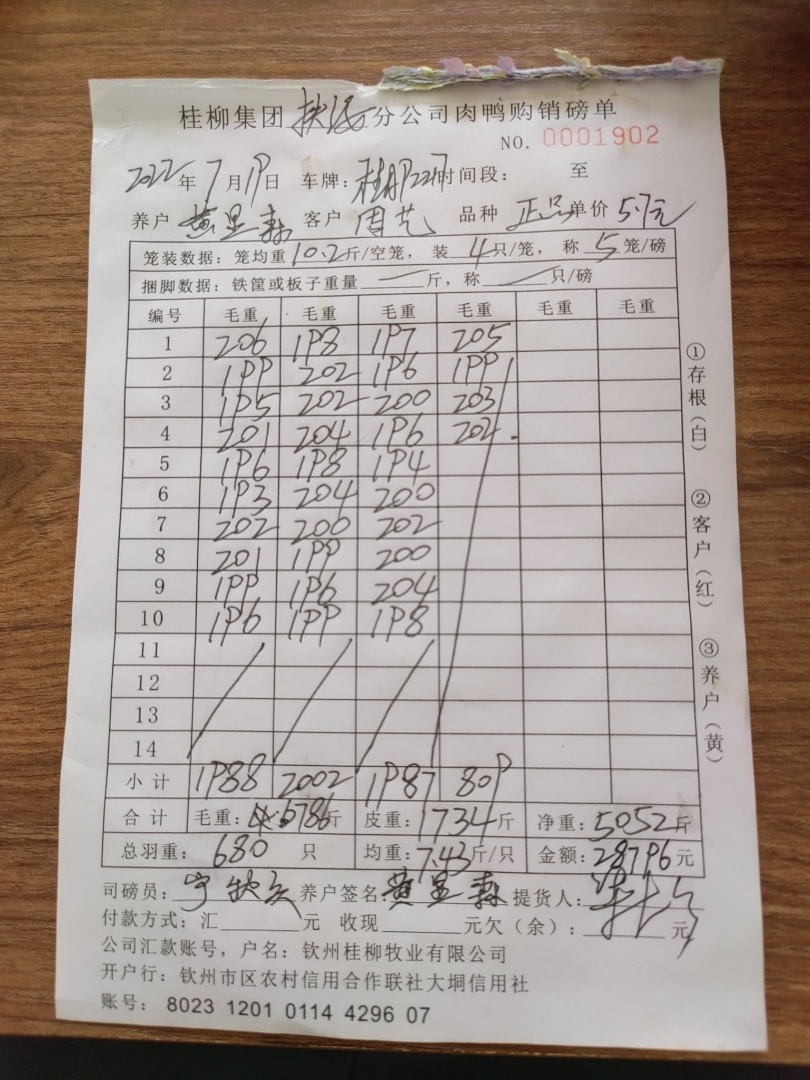 桂柳集团 分公司肉鸭购销磅单
NO. 0001902
2022年7月19日 车牌: 时间段: 至
养户 黄显森 客户 周艺 品种 正品 单价 5.7元
笼装数据: 笼均重10.2斤/空笼, 装4只/笼, 称5笼/磅
捆脚数据: 铁筐或板子重量 斤, 称 只/磅
编号 毛重 毛重 毛重 毛重 毛重 毛重
1 206 198 197 205
2 199 202 196 199
3 195 202 200 203
4 201 204 196 202
5 196 198 194
6 193 204 200
7 202 200 202
8 201 199 200
9 199 196 204
10 196 199 198
11
12
13
14
小计 1988 2002 1987 809
合计 毛重: 6786斤 皮重: 1734斤 净重: 5052斤
总羽重: 680 只 均重: 7.43斤/只 金额: 28796元
司磅员: 养户签名 黄显森 提货人:
付款方式: 汇 元 收现 元欠(余): 元
公司汇款账号, 户名: 钦州桂柳牧业有限公司
开户行: 钦州市区农村信用合作联社大垌信用社
账号: 8023 1201 0114 4296 07
①存根(白)
②客户(红)
③养户(黄)